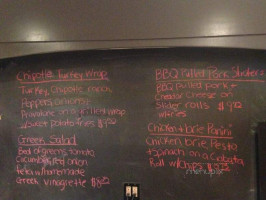 Chipotle Turkey Wrap
Turkey, Chipotle ranch
Peppers, onions,
Provolone in a grilled wrap
w/sweet potato fries $9
Green Salad
Bed of greens, tomato
Cucumber, Red onion
Feta w/ homemade
Greek Vinaigrette $8
BBQ Pulled Pork Sliders
BBQ pulled pork +
Cheddar Cheese on
Slider rolls $9
w/fries
Chicken + brie Panini
Chicken, brie, Pesto
+ Spinach on a Ciabatta
Roll w/chips $9